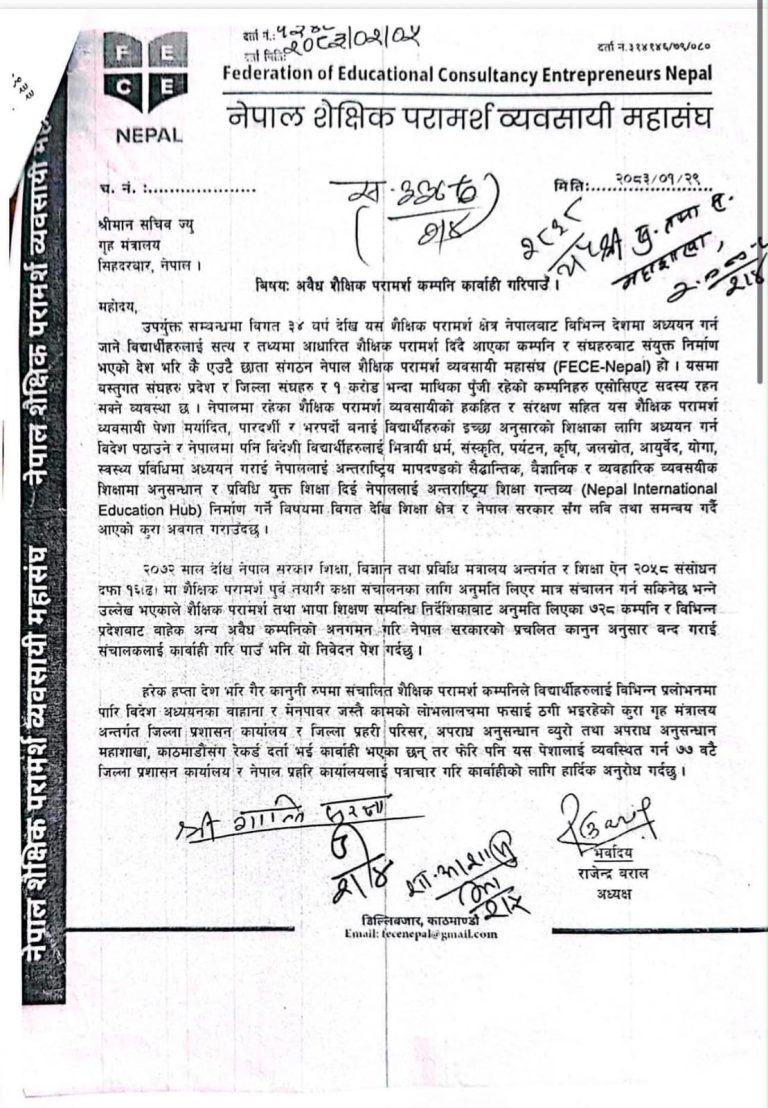 दर्ता नं.:
दर्ता मिति: २०८३/०२/०५
दर्ता नं.३१४१४६/७९/०८०
F E
C E
NEPAL
Federation of Educational Consultancy Entrepreneurs Nepal
नेपाल शैक्षिक परामर्श व्यवसायी महासंघ
च. नं. :....................
मिति:.....२०८३/०१/२९
श्रीमान सचिव ज्यु
गृह मन्त्रालय
सिहदरबार, नेपाल ।
महाशाखा,
२/४
बिषयः अवैध शैक्षिक परामर्श कम्पनि कार्वाही गरिपाउँ ।
महोदय,
उपर्युक्त सम्वन्धमा विगत ३४ वर्ष देखि यस शैक्षिक परामर्श क्षेत्र नेपालबाट विभिन्न देशमा अध्ययन गर्न
जाने विद्यार्थीहरुलाई सत्य र तथ्यमा आधारित शैक्षिक परामर्श दिदै आएका कम्पनि र संघहरुबाट संयुक्त निर्माण
भएको देश भरि कै एउटै छाता संगठन नेपाल शैक्षिक परामर्श व्यवसायी महासंघ (FECE-Nepal) हो । यसमा
वस्तुगत संघहरु प्रदेश र जिल्ला संघहरु र १ करोड भन्दा माथिका पुंजी रहेको कम्पनिहरु एसोसिएट सदस्य रहन
सक्ने व्यवस्था छ । नेपालमा रहेका शैक्षिक परामर्श व्यवसायीको हकहित र संरक्षण सहित यस शैक्षिक परामर्श
व्यवसायी पेशा मर्यादित, पारदर्शी र भरपर्दो बनाई विद्यार्थीहरुको इच्छा अनुसारको शिक्षाका लागि अध्ययन गर्न
विदेश पठाउने र नेपालमा पनि विदेशी विद्यार्थीहरुलाई भित्रायी धर्म, संस्कृति, पर्यटन, कृषि, जलस्रोत, आयुर्वेद, योगा,
स्वस्थ्य प्रविधिमा अध्ययन गराई नेपाललाई अन्तराष्ट्रिय मापदण्डको सैद्धान्तिक, वैज्ञानिक र व्यवहारिक व्यवसयीक
शिक्षामा अनुसन्धान र प्रविधि युक्त शिक्षा दिई नेपाललाई अन्तराष्ट्रिय शिक्षा गन्तव्य (Nepal International
Education Hub) निर्माण गर्ने विषयमा विगत देखि शिक्षा क्षेत्र र नेपाल सरकार संग लबि तथा समन्वय गर्दै
आएको कुरा अवगत गराउँदछ ।
२०७२ साल देखि नेपाल सरकार शिक्षा, विज्ञान तथा प्रविधि मन्त्रालय अन्तर्गत र शिक्षा ऐन २०५८ संसोधन
दफा १६(ढ) मा शैक्षिक परामर्श पुर्व तयारी कक्षा संचालनका लागि अनुमति लिएर मात्र संचालन गर्न सकिनेछ भन्ने
उल्लेख भएकाले शैक्षिक परामर्श तथा भाषा शिक्षण सम्वन्धि निर्देशिकाबाट अनुमति लिएका ७२८ कम्पनि र विभिन्न
प्रदेशबाट वाहेक अन्य अवैध कम्पनिको अनगमन गरि नेपाल सरकारको प्रचलित कानुन अनुसार बन्द गराई
संचालकलाई कार्वाही गरि पाउँ भनि यो निवेदन पेश गर्दछु ।
हरेक हप्ता देश भरि गैर कानुनी रुपमा संचालित शैक्षिक परामर्श कम्पनिले विद्यार्थीहरुलाई विभिन्न प्रलोभनमा
पारि विदेश अध्ययनका वाहाना र मेनपावर जस्तै कामको लोभलालचमा फसाई ठगी भइरहेको कुरा गृह मन्त्रालय
अन्तर्गत जिल्ला प्रशासन कार्यालय र जिल्ला प्रहरी परिसर, अपराध अनुसन्धान व्युरो तथा अपराध अनुसन्धान
महाशाखा, काठमाडौंसंग रेकर्ड दर्ता भई कार्वाही भएका छन् तर फेरि पनि यस पेशालाई व्यवस्थित गर्न ७७ वटै
जिल्ला प्रशासन कार्यालय र नेपाल प्रहरि कार्यालयलाई पत्राचार गरि कार्वाहीको लागि हार्दिक अनुरोध गर्दछु ।
भवदिय
राजेन्द्र बराल
अध्यक्ष
डिल्लिबजार, काठमाण्डौ
Email: fecenepal@gmail.com
नेपाल शैक्षिक परामर्श व्यवसायी महासंघ
नेपाल शैक्षिक परामर्श व्यवसायी